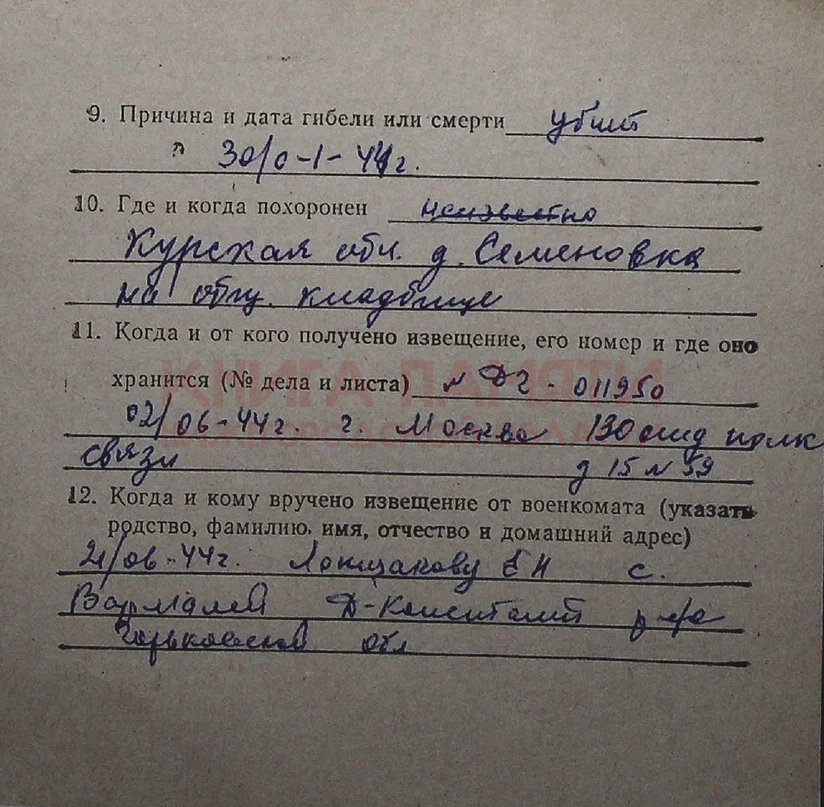 9. Причина и дата гибели или смерти убит
30/0-1-44г.
10. Где и когда похоронен неизвестно
Курская обл. д. Семеновка
на общ. кладбище
11. Когда и от кого получено извещение, его номер и где оно
КНИГА ПАМЯТИ
хранится (№ дела и листа) № 011950
02/06-44г. г. Москва 130 полк
связи д 15 № 59
12. Когда и кому вручено извещение от военкомата (указать
родство, фамилию, имя, отчество и домашний адрес)
2/06-44г. Лощакову Е Н с.
Вармалей Д-Константин р-на
Горьковской обл